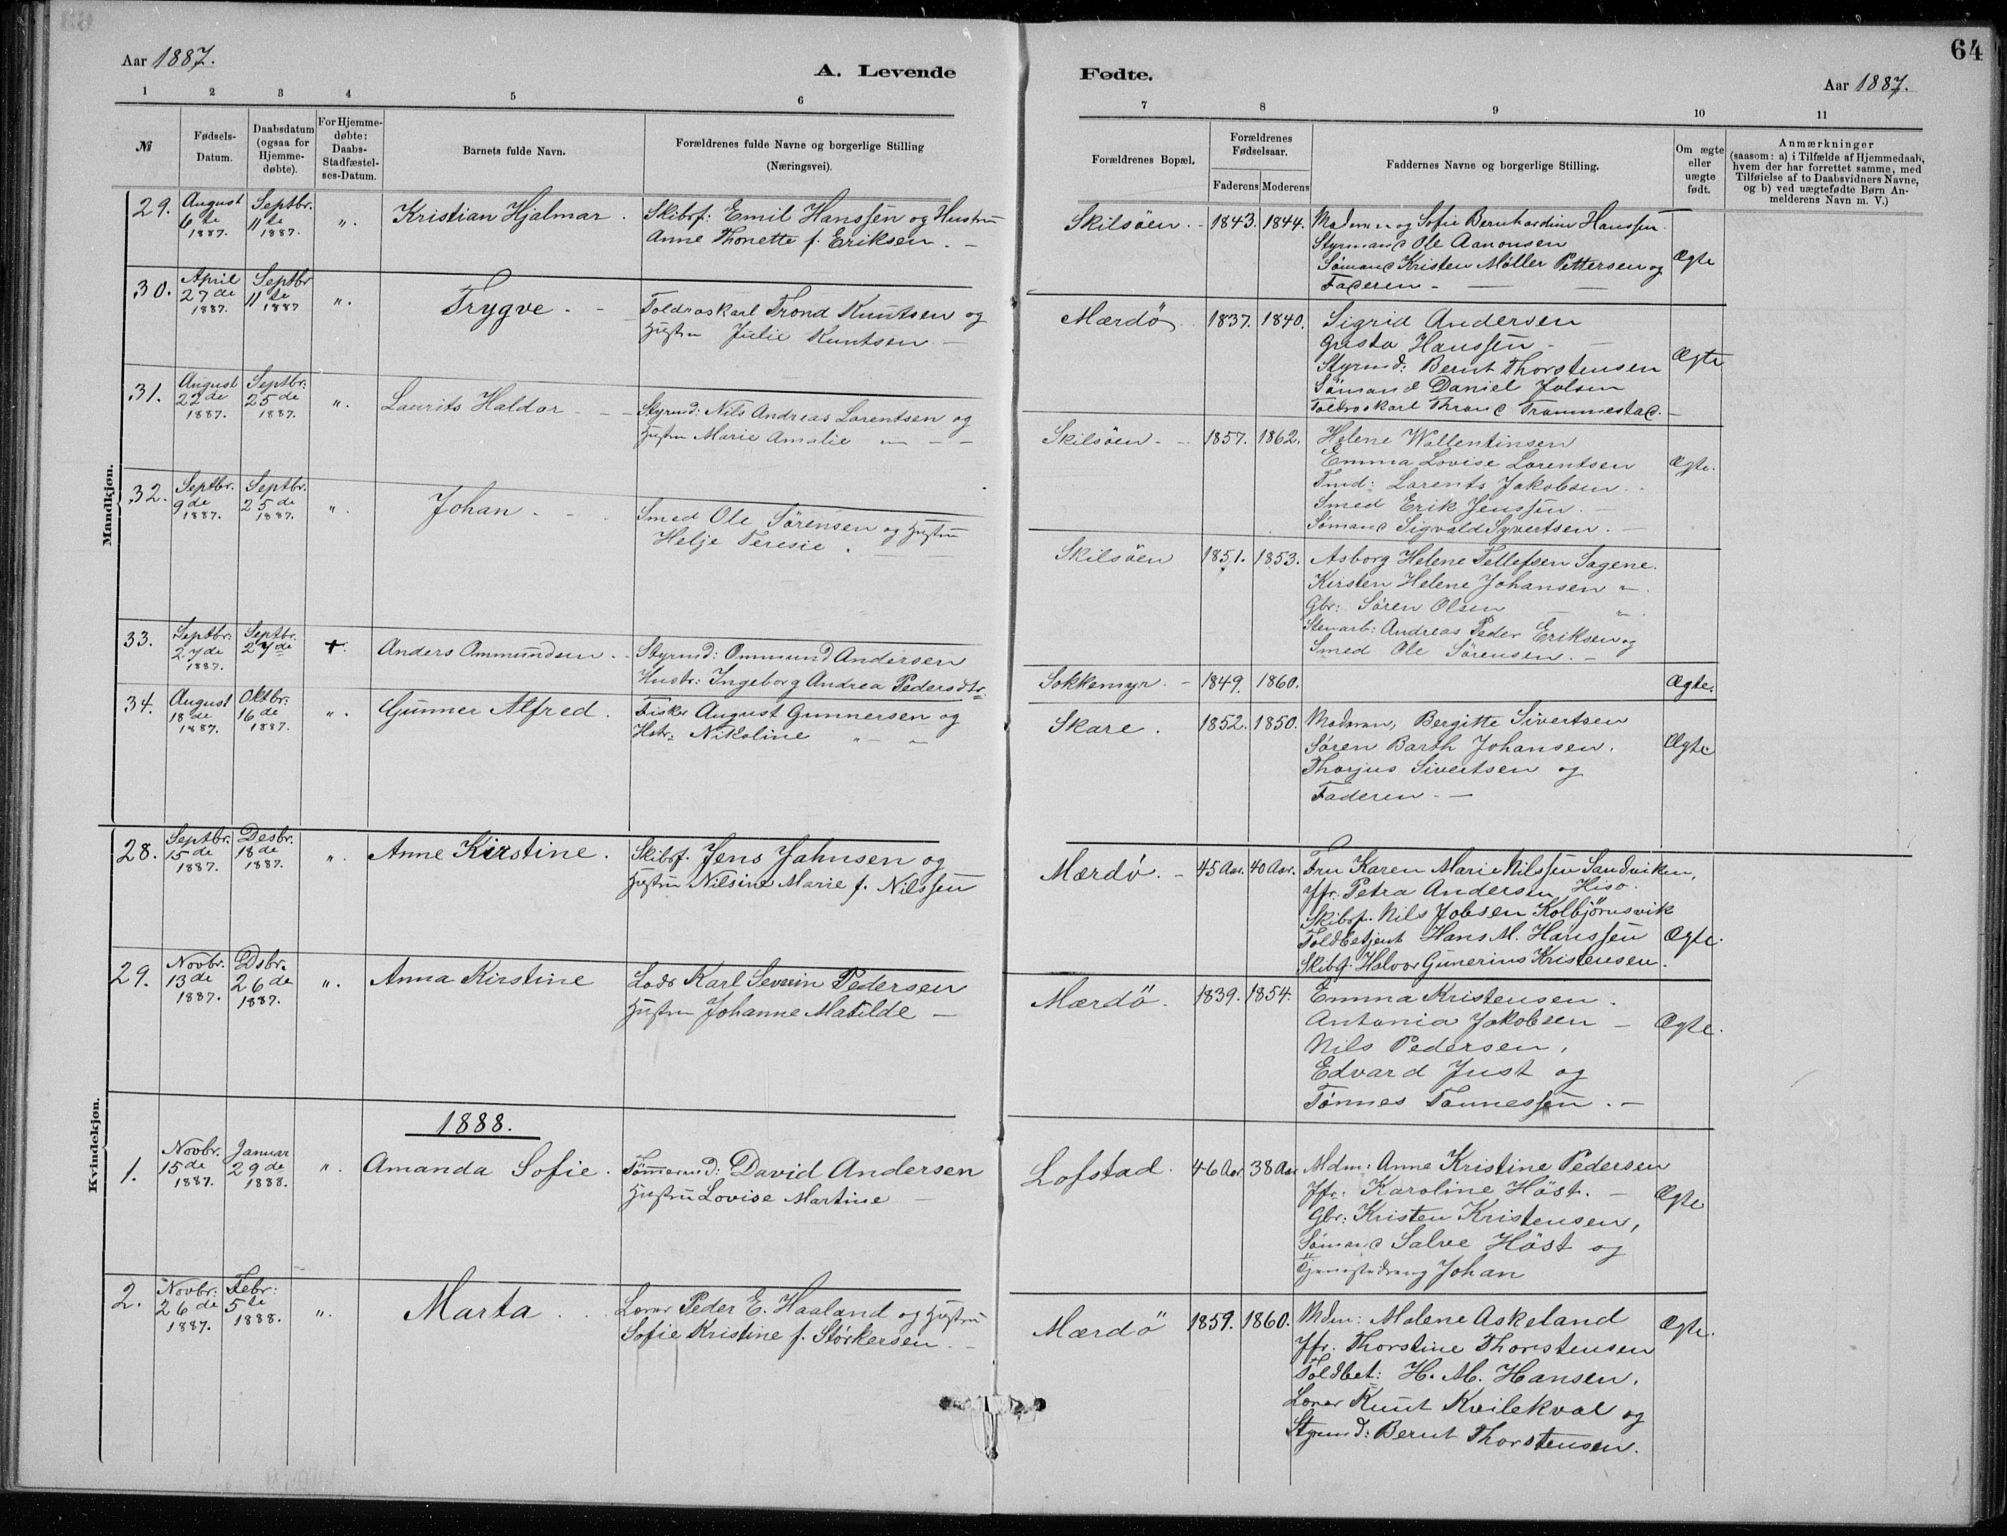 64
Aar 1887.
A. Levende Fødte.
Aar 1887.
1 2 3 4 5 6 7 8 9 10 11
№
Fødsels-Datum.
Daabsdatum (ogsaa for Hjemme-døbte).
For Hjemme-døbte: Daabs-Stadfæstel-ses-Datum.
Barnets fulde Navn.
Forældrenes fulde Navne og borgerlige Stilling
(Næringsvei).
Forældrenes Bopæl.
Forældrenes Fødselsaar.
Faderens Moderens
Faddernes Navne og borgerlige Stilling.
Om ægte eller uægte født.
Anmærkninger
(saasom: a) i Tilfælde af Hjemmedaab,
hvem der har forrettet samme, med
Tilføielse af to Daabsvidners Navne,
og b) ved uægtefødte Børn An-
melderens Navn m. V.)
Mandkjøn.
29. August 6te 1887. Septbr. 11te 1887. ". Kristian Hjalmar. Skibsf: Emil Hanssen og Hustru
Anne Thonette f. Eriksen. –
Skilsöen. 1843. 1844. Madmen og Sofie Bernhardine Hanssen.
Styrmand Ole Aanonsen
Sömand Kristen Möller Pettersen og
Faderen –
Ægte
30. April 27de 1887. Septbr 11te 1887 ". Trygve. – Toldroskarl Trond Knutsen og
Hustru Julie Knutsen –
Mærdö. 1837. 1840. Sigrid Andersen
Hanssen –
Styrmd: Bernt Thorstensen
Sömand Daniel
Toldroskarl Thrond Trommestad. –
Ægte
31. August 22de 1887. Septbr: 25de 1887. ". Laurits Haldor – – Styrmd: Nils Andreas Lorentsen og
Hustru Marie Amalie – –
Skilsöen – 1857. 1862. Helene Wallentinsen
Emma Lovise Lorentsen
Tmd: Lorents Jakobsen.
Smed Erik Jenssen –
Sömand Sigvald Syvertsen.
Ægte.
32. Septbr. 9de 1887. Septbr. 25de 1887. ". Johan – Smed Ole Sörensen og Hustru
Helje Teresie.
Skilsöen 1851. 1853. Asborg Helene Tellefsen Sagene.
Kirsten Helene Johansen "
Gbr: Sören Olsen "
Stenarb: Andreas Peder Eriksen og
Smed Ole Sörensen. –
33. Septbr: 27de 1887. Septbr. 27de + Anders Ommundsen. Styrmd: Ommund Andersen
Hustr: Ingeborg Andrea Pedersdtr.
Sokkemyr. – 1849. 1860. Ægte.
34. August 18de 1887. Oktbr: 16de 1887. ". Gunner Alfred. Fisker August Gunnersen og
Hstr: Nikoline " "
Skare. 1852. 1850. Madmm, Bergitte Sivertsen
Sören Barth Johansen.
Thorjus Sivertsen og
Faderen. –
Ægte
Kvindekjøn.
28. Septbr. 15de 1887. Desbr. 18de 1887. ". Anne Kirstine. Skibsf. Jens Jahnsen og
Hustru Nilsine Marie f. Nilssen
Mærdö. – 45 Aar. 40 Aar. Fru Karen Marie Nilssen Sandviken,
Jfr. Petra Andersen Hisö.
Skibsf. Nils Jobsen Kolbjörnsvik
Toldbetjent Hans M. Hanssen
Skibsf: Halvor Gunerius Kristensen.
Ægte.
29. Novbr. 13de 1887. Dsbr. 26de 1887. ". Anna Kirstine Lods Karl Severin Pedersen
Hustru Johanne Matilde –
Mærdö. 1839. 1854. Emma Kristensen.
Antonia Jakobsen –
Nils Pedersen,
Edvard Just og
Tönnes Tönnessen. –
Ægte.
1888.
1. Novbr. 15de 1887. Januar 29de 1888. ". Amanda Sofie. Tömmermd: David Andersen
Hustru Lovise Martine –
Lofstad. 46 Aar 38 Aar Mdm: Anne Kristine Pedersen
Jfr: Karoline Höst. –
Gbr: Kristen Kristensen,
Sömand Salve Höst og
Tjenestedreng Johan
Ægte
2. Novbr: 26de 1887. Febr: 5te 1888. ". Marta. Lærer Peder E. Haaland og Hustru
Sofie Kristine f. Störkersen. –
Mærdö 1859. 1860. Mdm: Malene Askeland
Jfr. Thorstine Thorstensen
Toldbet: H. M. Hansen,
Lærer Knut Kvilekval og
Styrmd: Bernt Thorstensen.
Ægte.